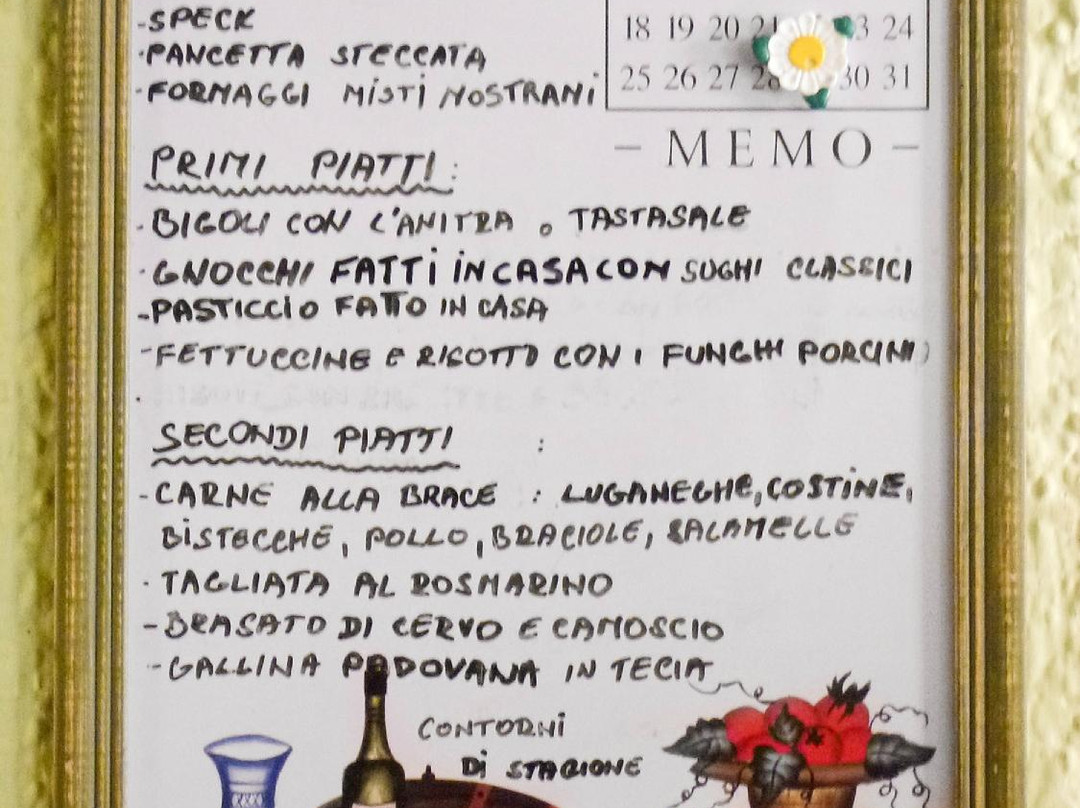 -SPECK
-PANCETTA STECCATA
-FORMAGGI MISTI NOSTRANI
18 19 20 21 23 24
25 26 27 28 30 31
- MEMO -
PRIMI PIATTI:
-BIGOLI CON L'ANITRA o TASTASALE
-GNOCCHI FATTI IN CASA CON SUGHI CLASSICI
-PASTICCIO FATTO IN CASA
-FETTUCCINE E RISOTTO CON I FUNGHI PORCINI
SECONDI PIATTI :
-CARNE ALLA BRACE : LUGANEGHE, COSTINE,
BISTECCHE, POLLO, BRACIOLE, SALAMELLE
-TAGLIATA AL ROSMARINO
-BRASATO DI CERVO E CAMOSCIO
-GALLINA PADOVANA IN TECIA
CONTORNI
DI STAGIONE